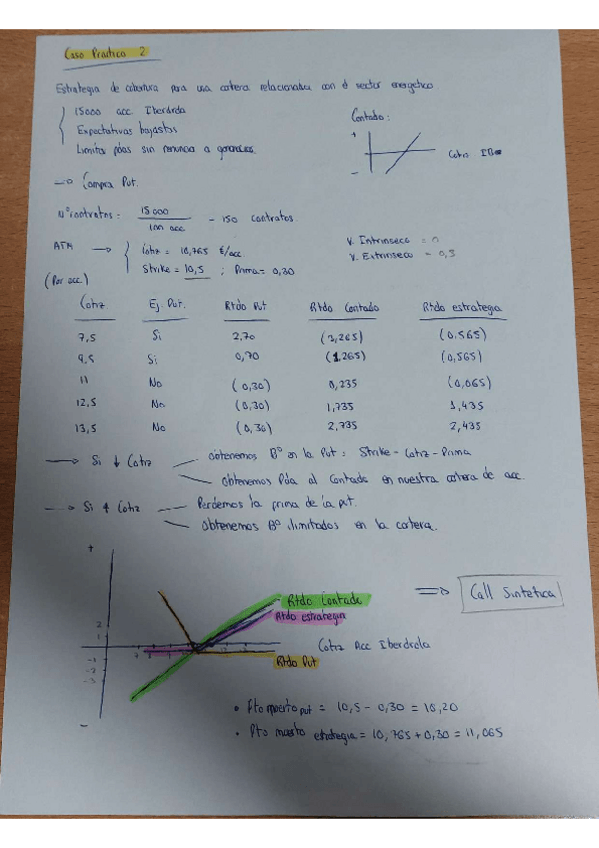 Caso Practico 2
Estrategia de cobertura para una cartera relacionada con el sector energético
15000 acc Iberdrola
Expectativas bajistas
Limitar pdas sin renuncia a ganancias.
Contado:
+
-
Cotiz IBE
→ Compra Put.
Nº contratos = 15000 / 100 acc = 150 contratos
ATM → Cotiz = 10,765 €/acc.
Strike = 10,5 ; Prima = 0,30
V. Intrínseco = 0
V. Extrínseco = 0,3
(Por acc.)
Cotiz Ej. Put. Rtdo Put Rtdo Contado Rtdo estrategia
7,5 Si 2,70 (3,265) (0,565)
9,5 Si 0,70 (1,265) (0,565)
11 No (0,30) 0,235 (0,065)
12,5 No (0,30) 1,735 1,435
13,5 No (0,30) 2,735 2,435
→ Si ↓ Cotiz
obtenemos Bº en la Put = Strike - Cotiz - Prima
Obtenemos Pda al Contado en nuestra cartera de acc.
→ Si ↑ Cotiz
Perdemos la prima de la put.
Obtenemos Bº ilimitados en la cartera.
+
2
1
-1
-2
-3
-
Rtdo Contado
Rtdo estrategia
Rtdo Put
Cotiz Acc Iberdrola
⇒ Call Sintetica
• Pto muerto put = 10,5 - 0,30 = 10,20
• Pto muerto estrategia = 10,765 + 0,30 = 11,065